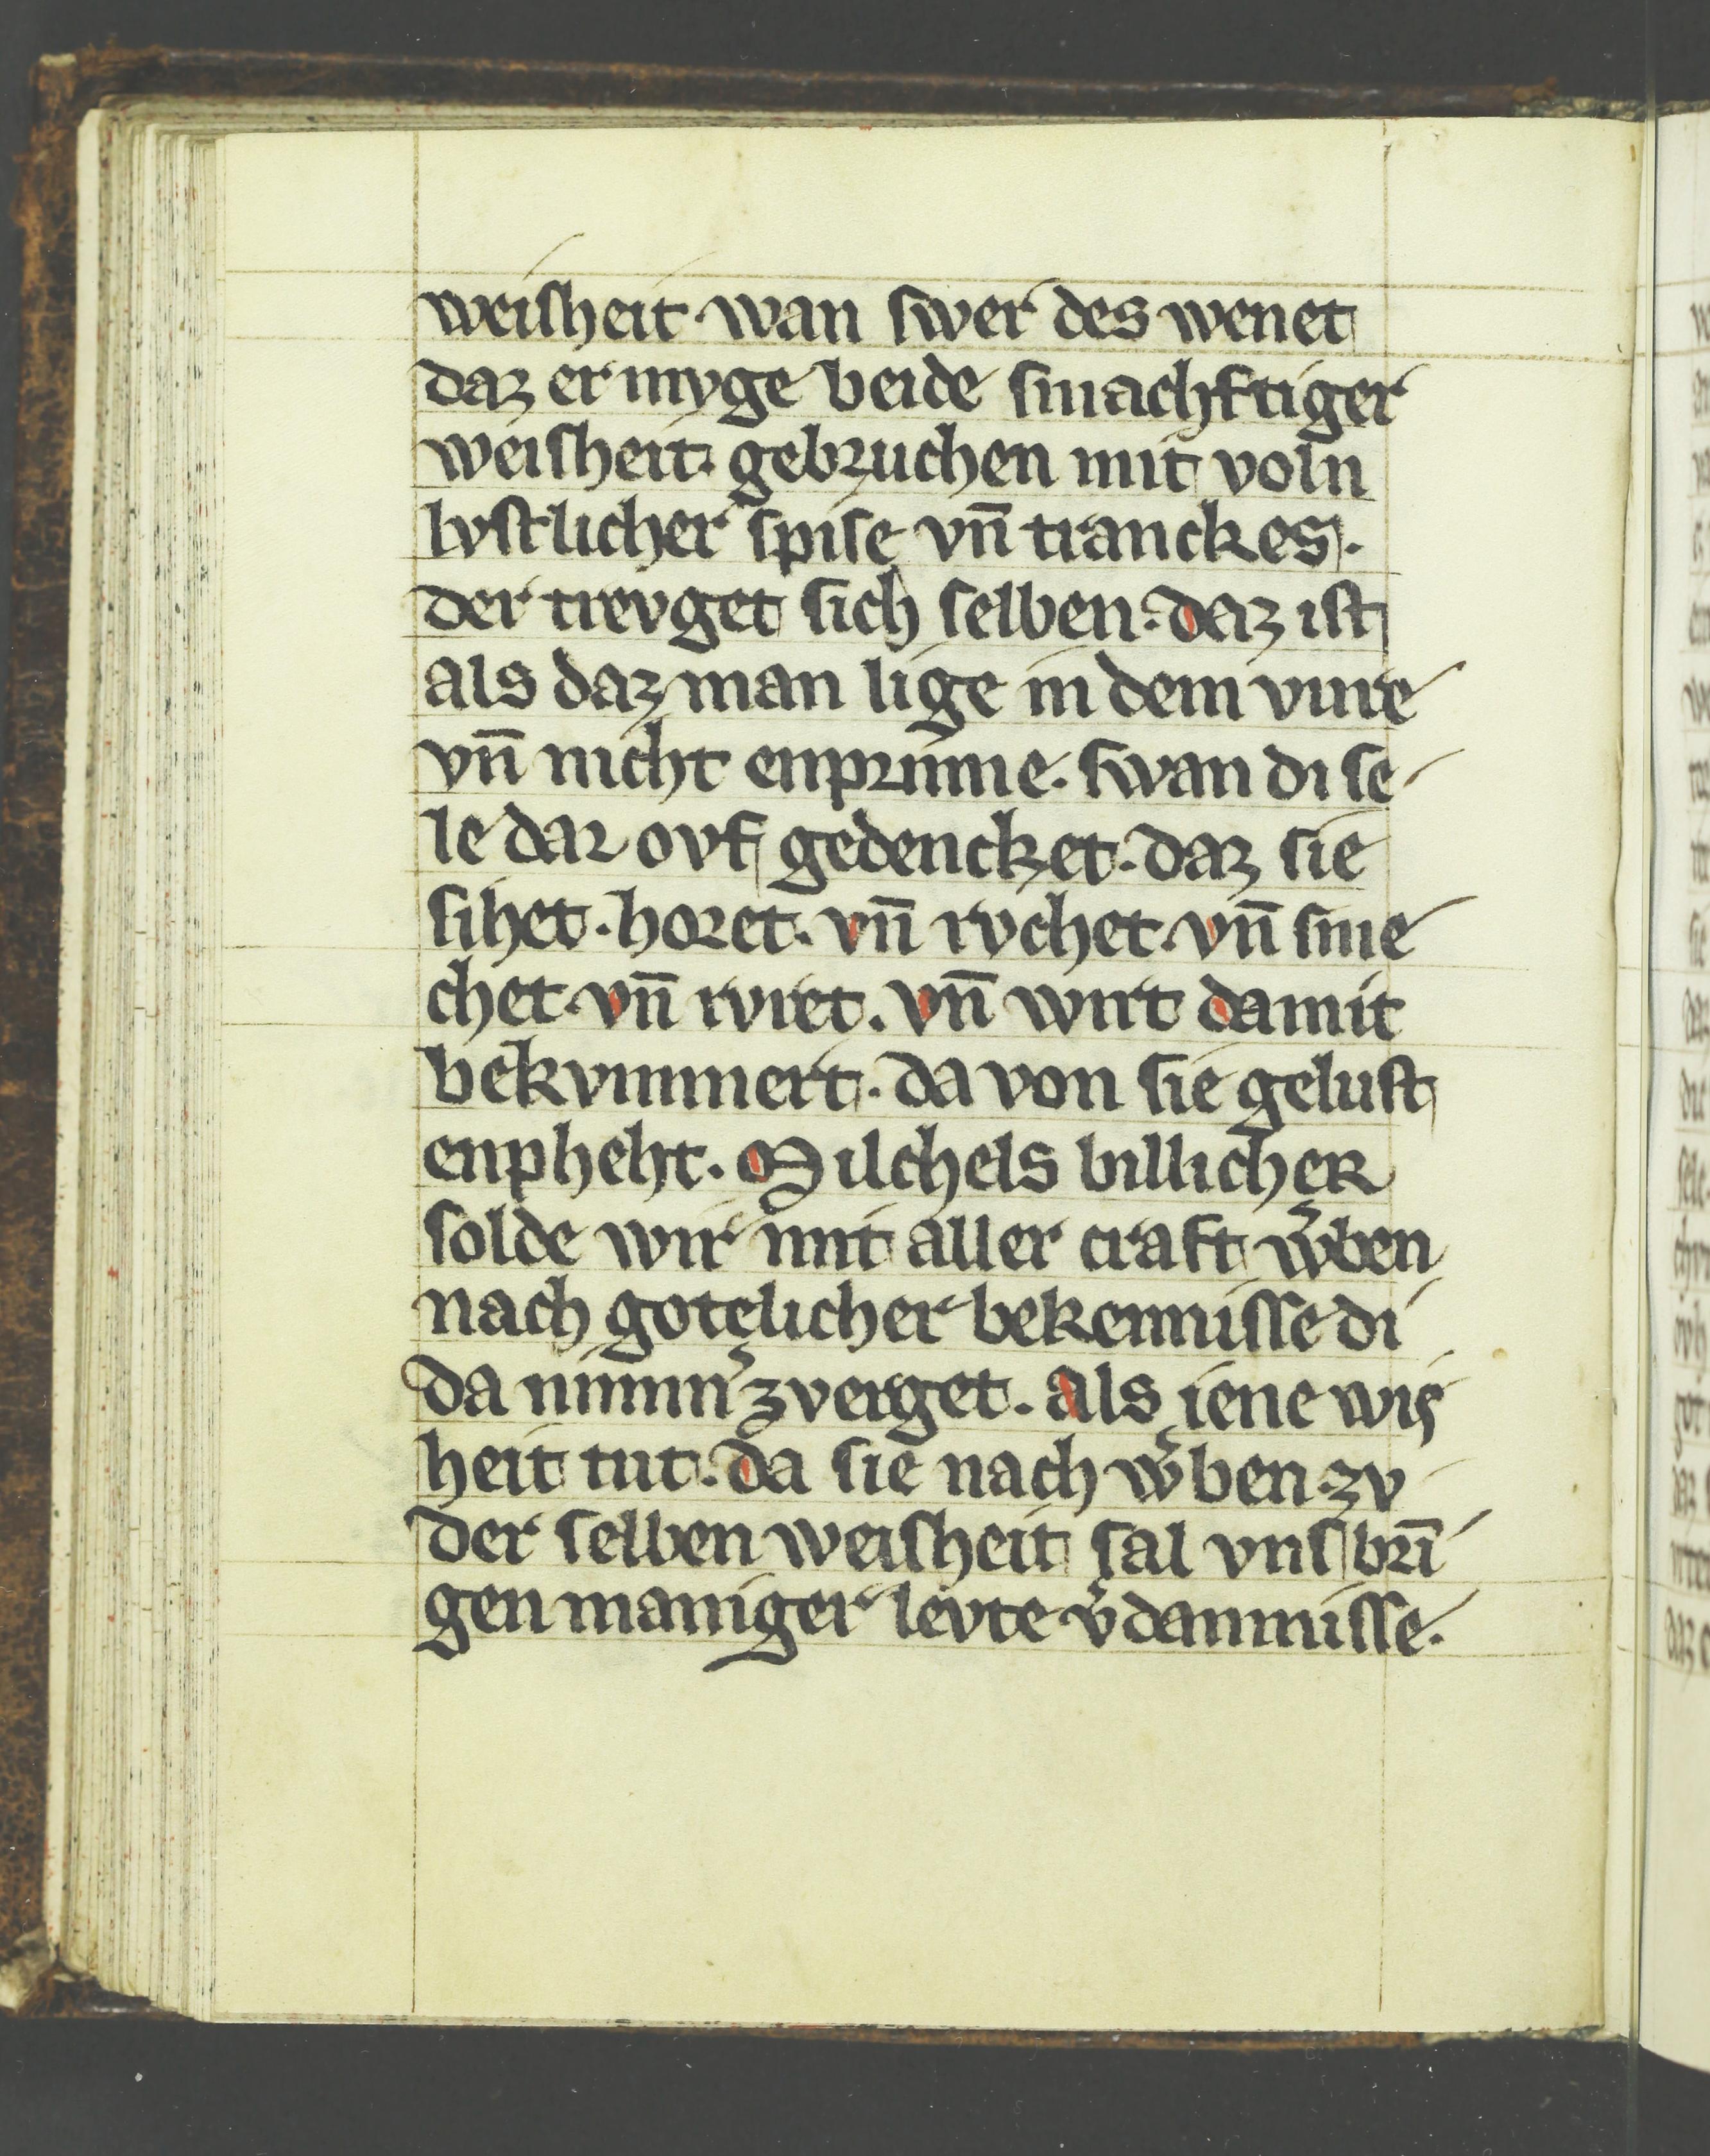 weisheit · wan swer des wenet
daz er myge beide smachftiger
weisheit · gebruchen mit voln
lystlicher spise vn̄ tranckes ·
der trevget sich selben · daz ist
als daz man lige in dem vure
vn̄ nicht enprinne · swan di se
le dar ovf gedencket · daz sie
sihet · horet · vn̄ rvchet · vn̄ sme
chet · vn̄ rvret · vn̄ wirt damit
bekvmmert · da von sie gelust
enpheht · Milchels billicher
solde wir mit aller craft w̓ben
nach gotelicher bekennisse di
da nimm̓ zverget · als iene wis
heit tut · da sie nach w̓ben · zv
der selben weisheit sal vns brī
gen maniger levte v̓damnisse ·